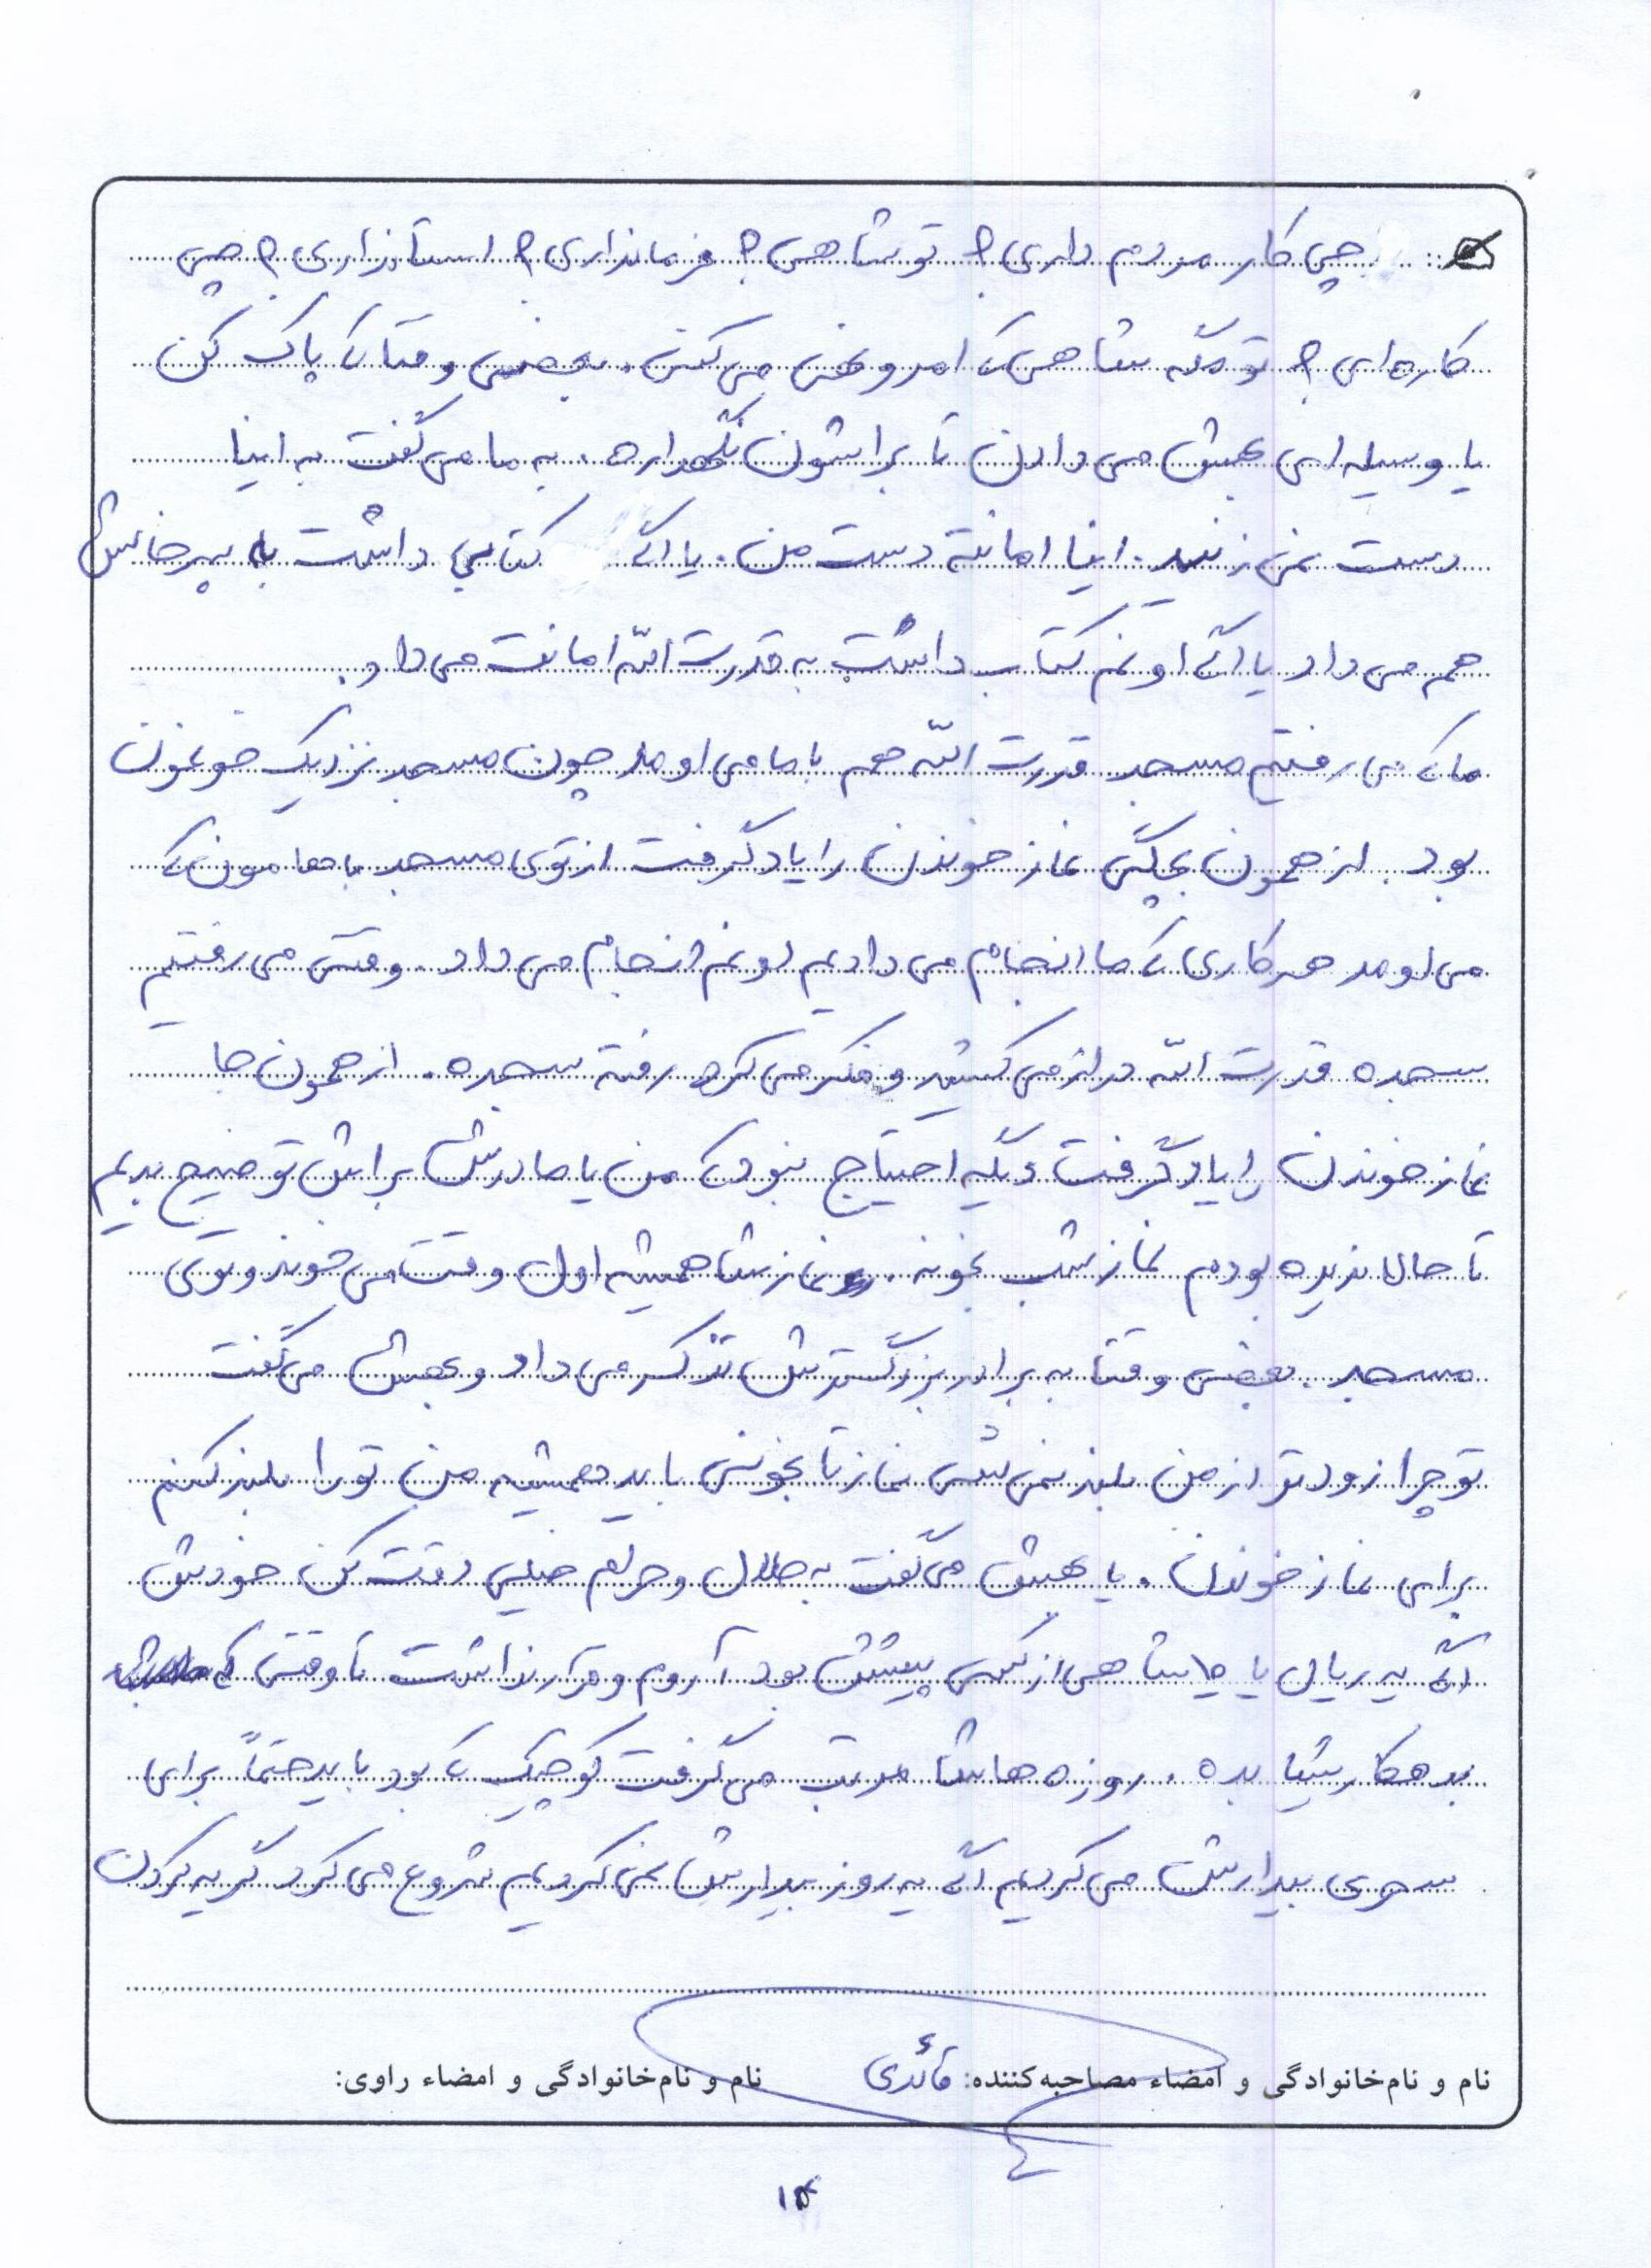 چی کار مردم داری؟ تو شاهی؟ فرمانداری؟ استانداری؟ چی
کاره‌ای؟ تو مگه شاهی که امر و نهی می‌کنی. بعضی وقتا که پاک کن
یا وسیله‌ای بهش می‌دادن تا براشون نگهداره. به ما می‌گفت به اینا
دست نمی‌زنید. اینا امانته دست من. یا اگه کتابی داشت به پسرخاله‌ش
هم می‌داد یا اگه اونم کتاب داشت به قدرت الله امانت می‌داد.
ما که می‌رفتیم مسجد قدرت الله هم با ما می‌اومد چون مسجد نزدیک خونمون
بود. از همون بچگی نماز خوندن را یاد گرفت از توی مسجد باهامون که
می‌اومد هر کاری که ما انجام می‌دادیم اونم انجام می‌داد. وقتی می‌رفتیم
سجده قدرت الله دراز می‌کشید و فکر می‌کرد رفته سجده. از همون جا
نماز خوندن را یاد گرفت دیگه احتیاج نبود که من یا مادرش براش توضیح بدیم
تا حالا ندیده بودم نماز شب بخونه. نمازشا همیشه اول وقت می‌خوند و توی
مسجد. بعضی وقتا به برادر بزرگترش تذکر می‌داد و بهش می‌گفت
تو چرا زودتر از من بلند نمی‌شی نمازتا بخونی باید همیشه من تو را بلند کنم
برای نماز خوندن. یا بهش می‌گفت به حلال و حرام خیلی دقت کن خودش
اگه یه ریال یا چا شاهی از کسی پیشش بود آروم و قرار نداشت تا وقتی که
بدهکاریشا بده. روزه‌هاشا مرتب می‌گرفت کوچیک که بود باید حتماً برای
سحری بیدارش می‌کردیم اگه یه روز بیدارش نمی‌کردیم شروع می‌کرد گریه کردن
نام و نام‌خانوادگی و امضاء مصاحبه‌کننده: قائدی نام و نام‌خانوادگی و امضاء راوی:
۱۴